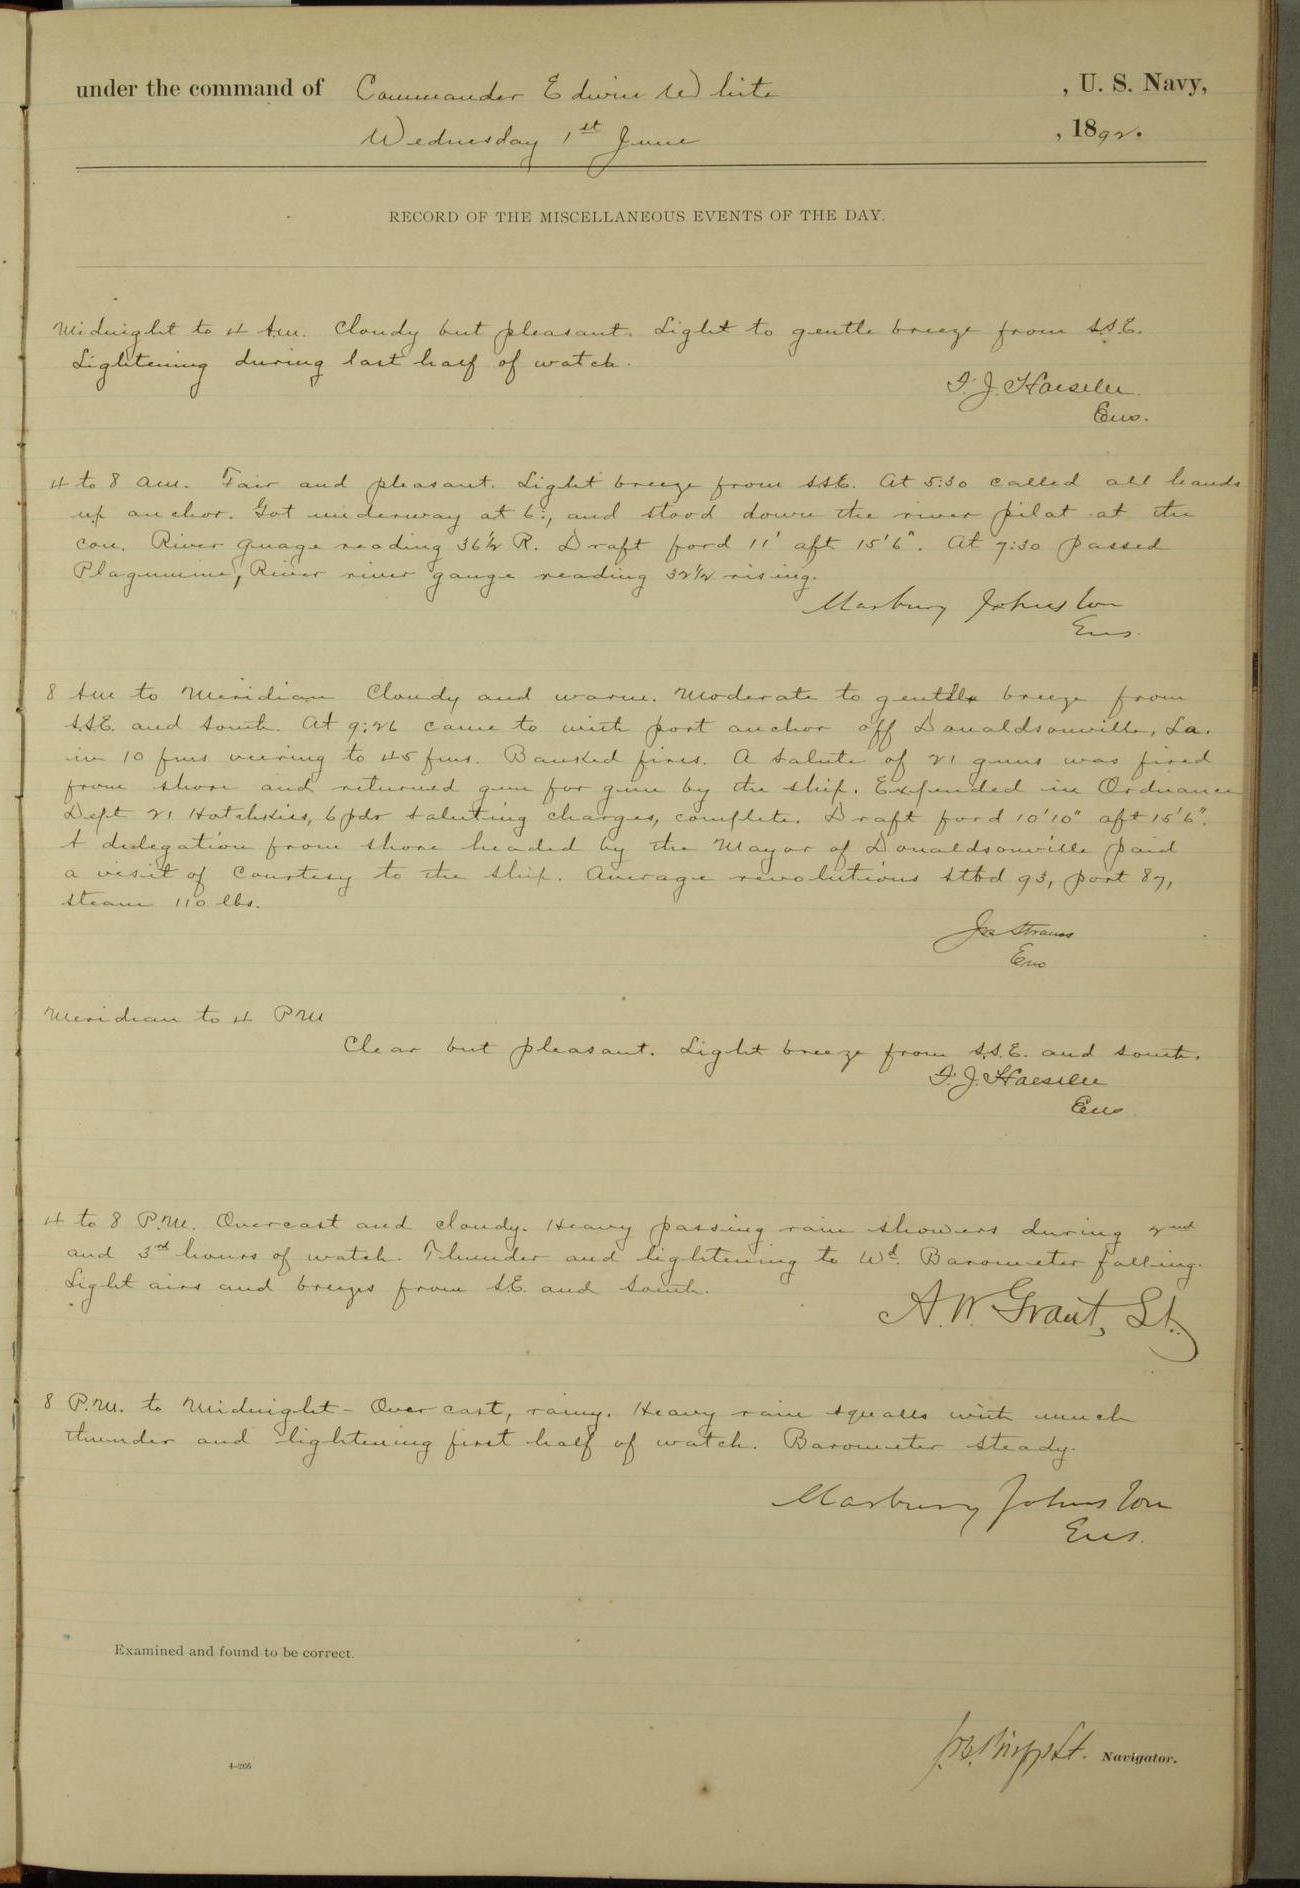 under the command of Commander Edwin White , U. S. Navy,
Wednesday 1st June , 1892.
RECORD OF THE MISCELLANEOUS EVENTS OF THE DAY.
Midnight to 4 Am. Cloudy but pleasant. Light to gentle breeze from S.S.E.
Lightening during last half of watch.
F. J. Haeseler
Ens.
4 to 8 am. Fair and pleasant. Light breeze from SSE. At 5:30 called all hands
up anchor. Got underway at 6:, and stood down the river pilot at the
con. River guage reading 36½ R. Draft ford 11' aft 15'6". At 7:30 passed
Plaqumine, River river gauge reading 32½ rising.
Marbury Johnston
Ens.
8 Am to Meridian Cloudy and warm. Moderate to gentle breeze from
S.S.E. and South. At 9:26 came to with port anchor off Donaldsonville, La.
in 10 fms veering to 45 fms. Banked fires. A Salute of 21 guns was fired
from shore and returned gun for gun by the ship. Expended in Ordnance
Dept 21 Hotchkiss, 6 pdr saluting charges, complete. Draft ford 10'10" aft 15'6".
A delegation from shore headed by the Mayor of Donaldsonville paid
a visit of Courtesy to the ship. Average revolutions stbd 93, port 87,
steam 110 lbs.
Jos Strauss
Ens
Meridian to 4 PM
Clear but pleasant. Light breeze from S.S.E. and South.
F. J. Haeseler
Ens
4 to 8 P.M. Overcast and cloudy. Heavy passing rain showers during 2nd
and 3rd hours of watch. Thunder and lightening to Wd. Barometer falling.
Light airs and breezes from S.E. and South.
A. W. Grant, Lt.
8 P.M. to Midnight - Over cast, rainy. Heavy rain squalls with much
thunder and lightening first half of watch. Barometer steady.
Marbury Johnston
Ens.
Examined and found to be correct.
Lt. Navigator.
4—205